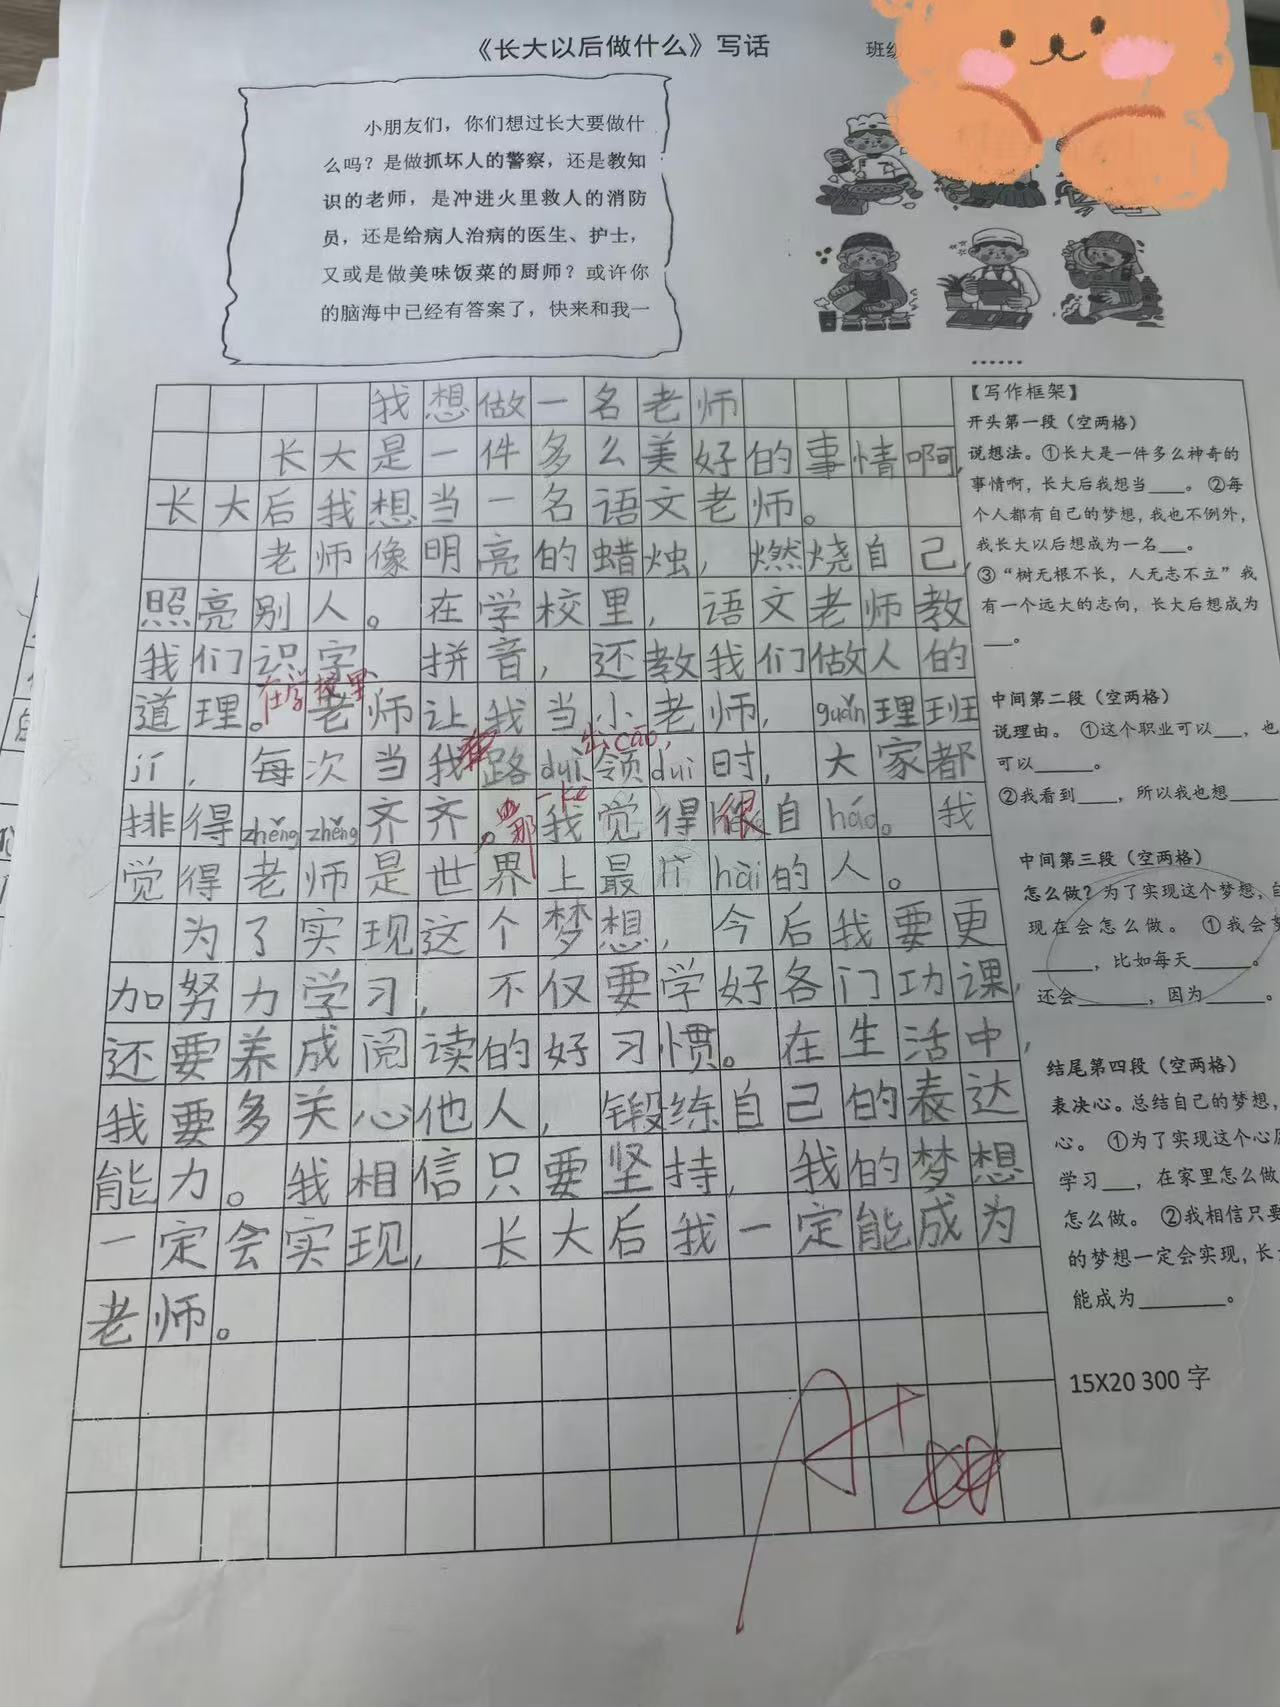 《长大以后做什么》写话
班级
小朋友们，你们想过长大要做什
么吗？是做抓坏人的警察，还是教知
识的老师，是冲进火里救人的消防
员，还是给病人治病的医生、护士，
又或是做美味饭菜的厨师？或许你
的脑海中已经有答案了，快来和我一
......
我想做一名老师
长大是一件多么美好的事情啊，
长大后我想当一名语文老师。
老师像明亮的蜡烛，燃烧自己，
照亮别人。在学校里，语文老师教
我们识字 拼音，还教我们做人的
在学校里
道理。老师让我当小老师，guǎn理班
出cāo，
jí，每次当我路duì领duì时，大家都
一kè
排得zhěngzhěng齐齐。那我觉得很自háo。我
觉得老师是世界上最 hài的人。
为了实现这个梦想，今后我要更
加努力学习，不仅要学好各门功课，
还要养成阅读的好习惯。在生活中，
我要多关心他人，锻练自己的表达
能力。我相信只要坚持，我的梦想
一定会实现，长大后我一定能成为
老师。
【写作框架】
开头第一段（空两格）
说想法。①长大是一件多么神奇的
事情啊，长大后我想当____。②每
个人都有自己的梦想，我也不例外，
我长大以后想成为一名___。
③“树无根不长，人无志不立”我
有一个远大的志向，长大后想成为
___。
中间第二段（空两格）
说理由。①这个职业可以___，也
可以______。
②我看到____，所以我也想_____
中间第三段（空两格）
怎么做？为了实现这个梦想，
现在会怎么做。①我会
______，比如每天______。
还会_______，因为______。
结尾第四段（空两格）
表决心。总结自己的梦想，
心。①为了实现这个心
学习___，在家里怎么做
怎么做。②我相信只要
的梦想一定会实现，长
能成为________。
15X20 300 字